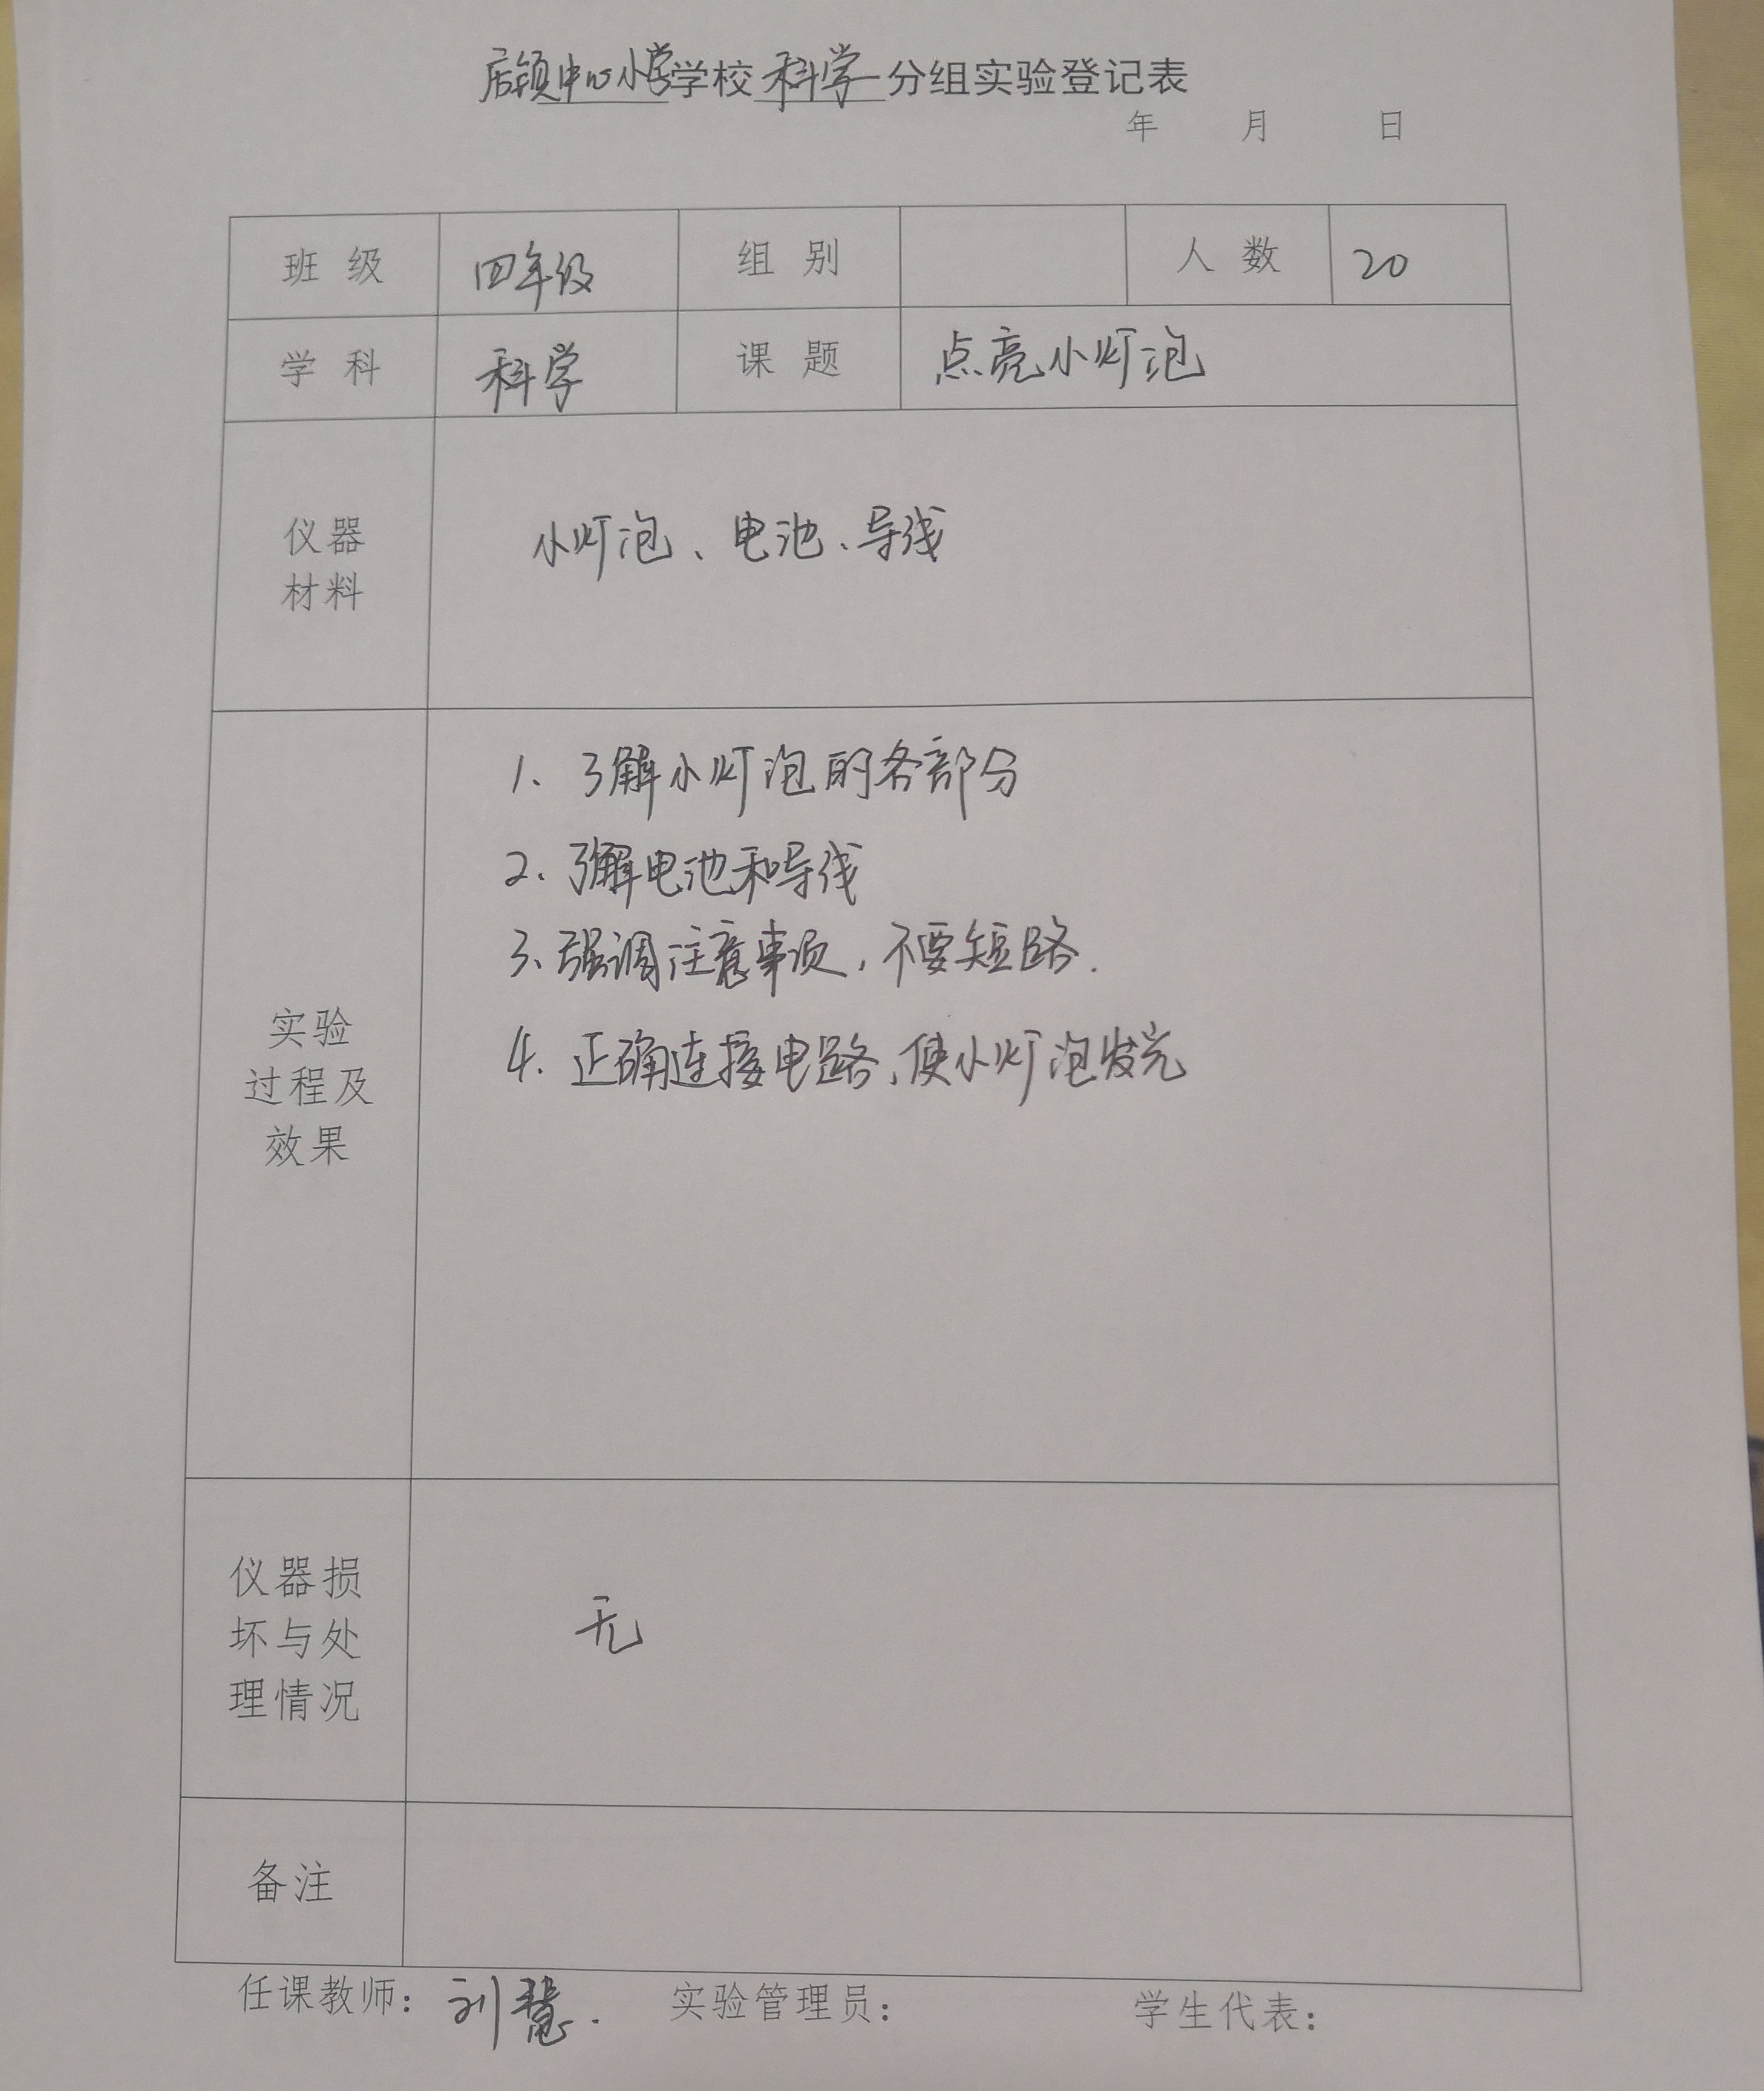 店镇中心小学学校科学分组实验登记表
年 月 日
班级 四年级 组别 人数 20
学科 科学 课题 点亮小灯泡
仪器
材料
小灯泡、电池、导线
实验
过程及
效果
1. 了解小灯泡的各部分
2. 了解电池和导线
3. 强调注意事项,不要短路.
4. 正确连接电路,使小灯泡发光
仪器损
坏与处
理情况
无
备注
任课教师: 刘慧. 实验管理员: 学生代表: